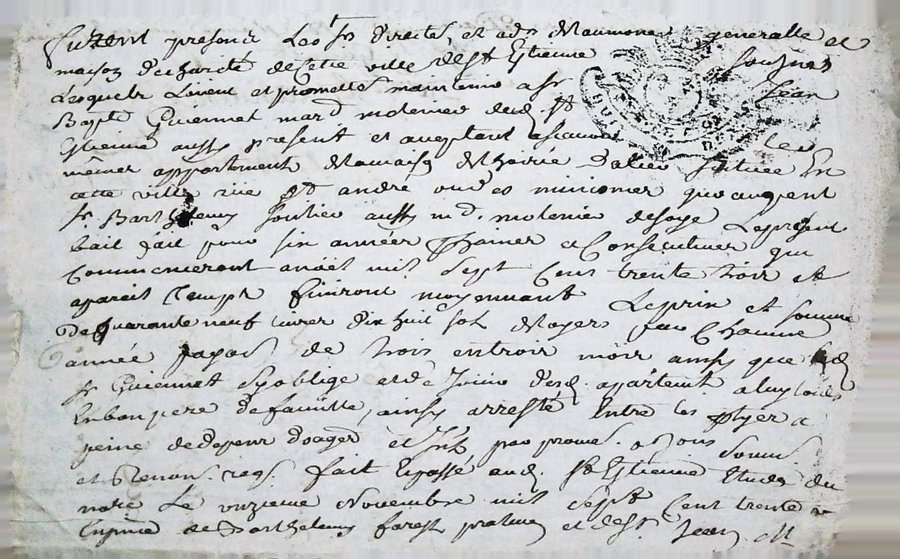 furent presents les srs directrs et adrs de laumone generalle et
maison de charité de cette ville de st Etienne soussignes
Lesquels Louent et promettes maintenir a sr Jean
Bapte Guiennet mard molenier dud st
Etienne aussy present et aceptant a scavoir les
mêmes appartement de maison située En
cette ville rue st andré qu'occupent
sr Barthelemy aussy md. molenier de soye Le present
bail fait pour six années Prochaines et Consecutives qui
Commenceront a noël mil sept Cens trente trois et
a pareil temps finiront moyennant Le prix et somme
De quarante neuf livres dix huit sols de loyers par Chacune
année payable de trois en trois mois ainsy que led
sr Guiennet s'y oblige et de Jouir desd. apartemt a luy loués
En bon pere de famille, ainsy arresté Entre les ptyes a
peine de depens par promes. obons soums.
et Renons. reqs. fait Et passé aud. st Etienne Etude du
notre Le onzieme Novembre mil sept Cent trente
En presence de Barthelemy forest praticien et de sr. Jean M